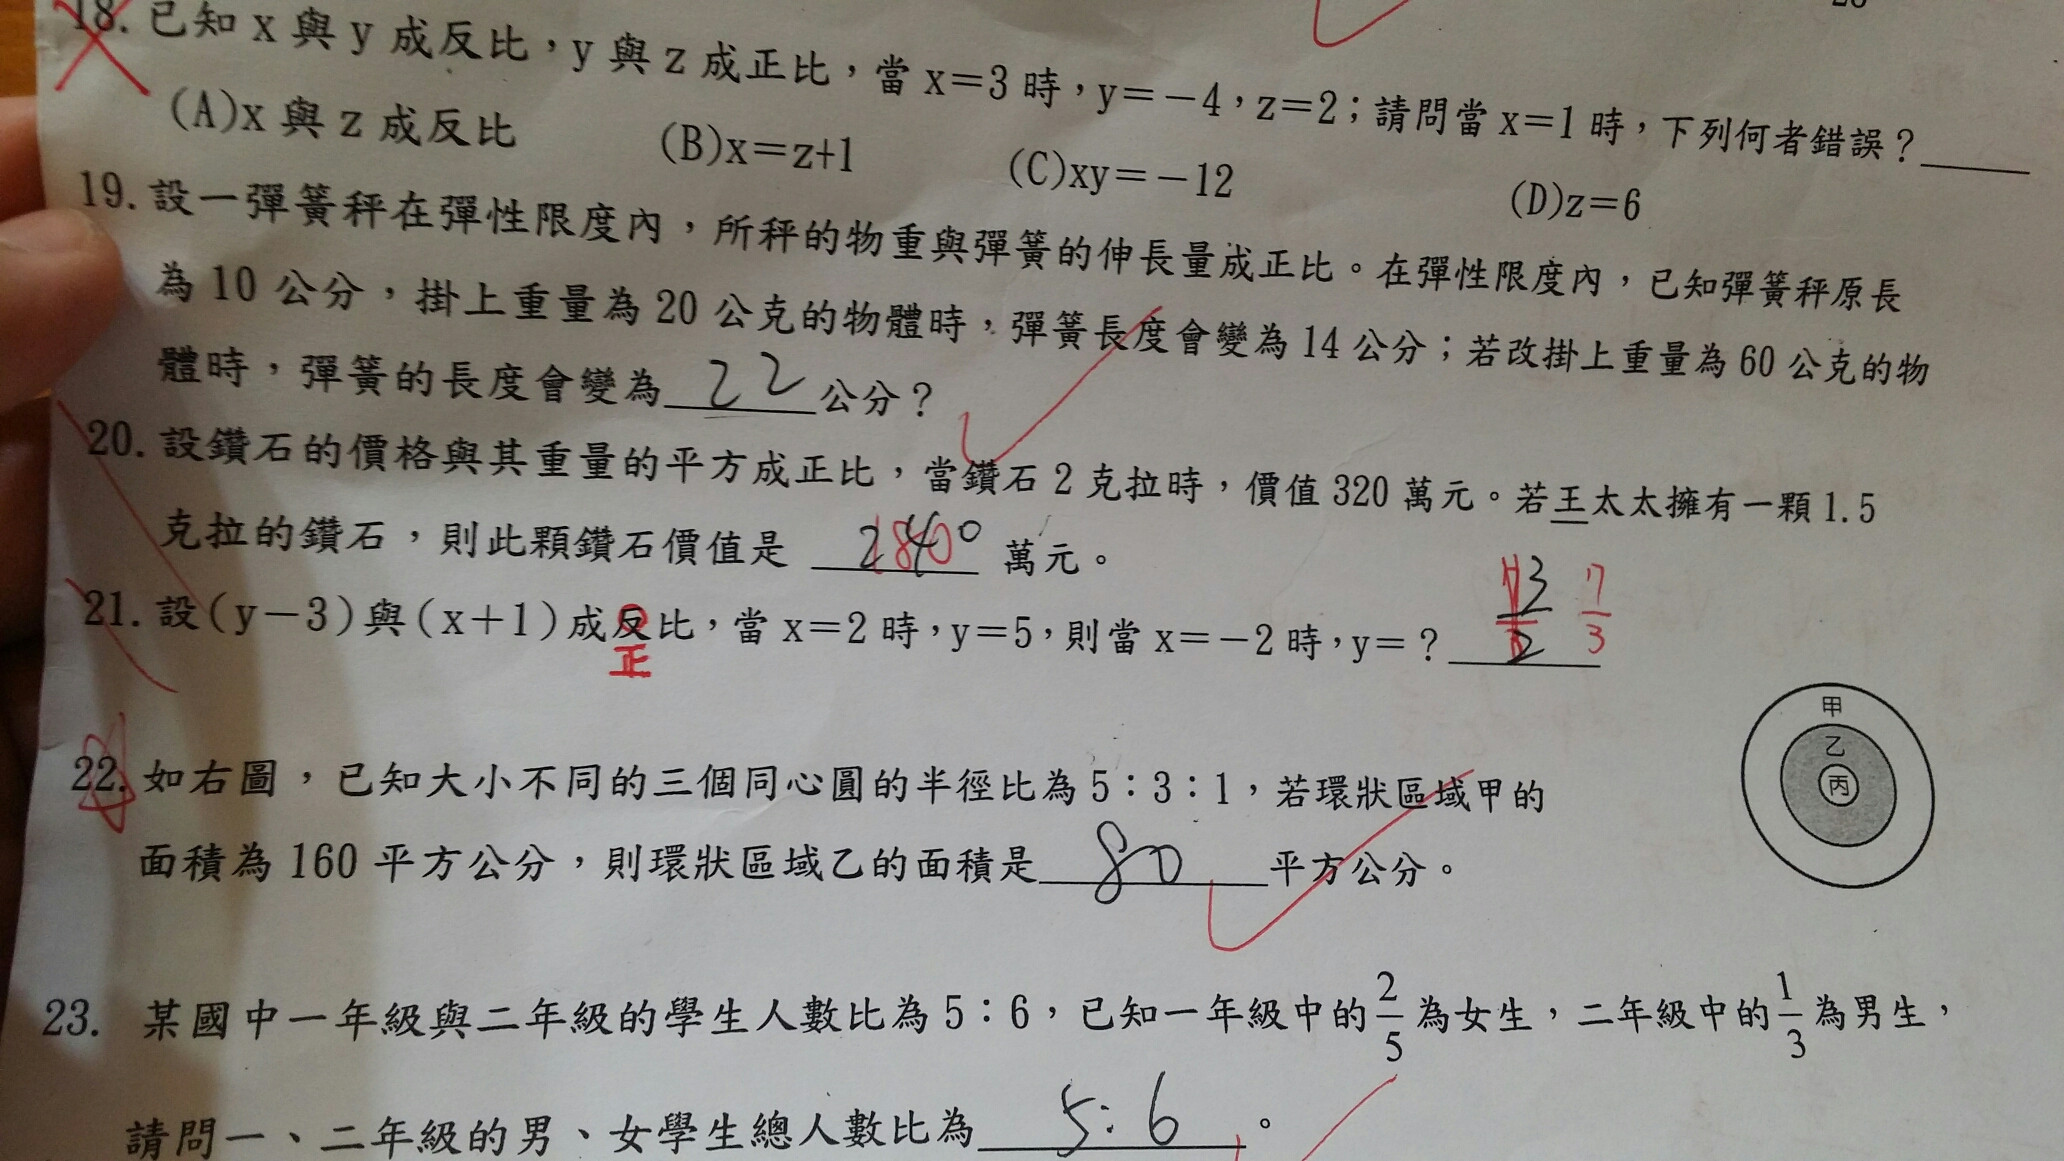 18. 已知 x 與 y 成反比，y 與 z 成正比，當 x=3 時，y=-4，z=2；請問當 x=1 時，下列何者錯誤？
(A)x 與 z 成反比 (B)x=z+1 (C)xy=-12 (D)z=6
19. 設一彈簧秤在彈性限度內，所秤的物重與彈簧的伸長量成正比。在彈性限度內，已知彈簧秤原長
為 10 公分，掛上重量為 20 公克的物體時，彈簧長度會變為 14 公分；若改掛上重量為 60 公克的物
體時，彈簧的長度會變為 22 公分？
20. 設鑽石的價格與其重量的平方成正比，當鑽石 2 克拉時，價值 320 萬元。若王太太擁有一顆 1.5
克拉的鑽石，則此顆鑽石價值是 萬元。
21. 設(y-3)與(x+1)成反比，當 x=2 時，y=5，則當 x=-2 時，y=？ 7/3
正
甲
乙
丙
22. 如右圖，已知大小不同的三個同心圓的半徑比為 5：3：1，若環狀區域甲的
面積為 160 平方公分，則環狀區域乙的面積是 80 平方公分。
23. 某國中一年級與二年級的學生人數比為 5：6，已知一年級中的 2/5 為女生，二年級中的 1/3 為男生，
請問一、二年級的男、女學生總人數比為 5:6 。